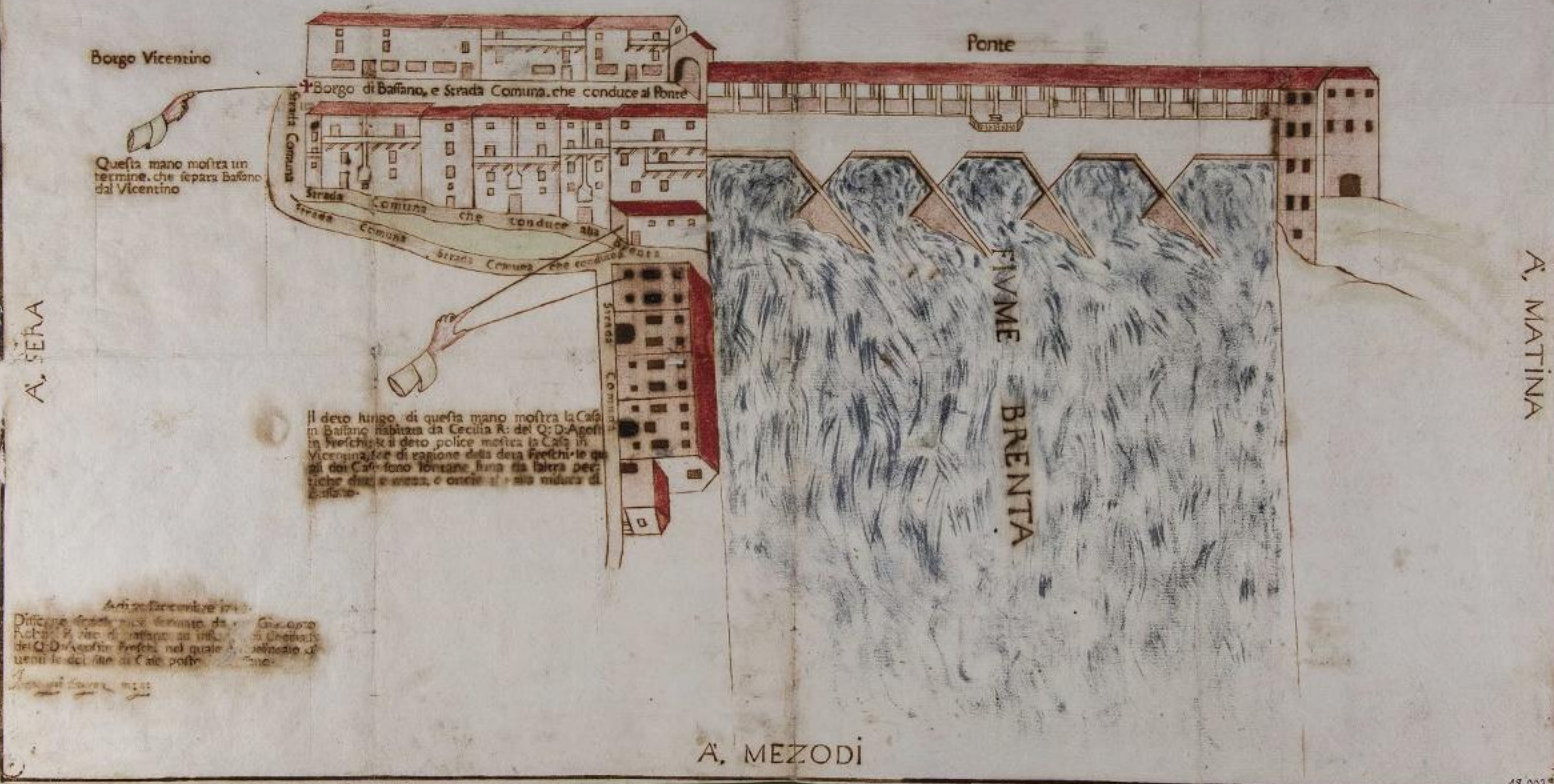 Ponte
Borgo Vicentino
Borgo di Bassano, e Strada Comuna, che conduce al Ponte
Strada Comuna
Questa mano mostra un
termine, che separa Bassano
dal Vicentino
Strada Comuna che conduce alla Brenta
Strada Comuna Strada Comuna che conduce
Strada Comuna
FIVME BRENTA
A, SERA
A, MATINA
Il deto lungo, di questa mano mostra la Casa
in Bassano habitata da Cecilia R: del Q: D: Agosti
n Freschi; & il deto police mostra la Casa in
Vicentina, di ragione della deta Freschi, le qu
ali doi Case sono lontane luna da laltra per
tiche e meza, e oncie alla misura di
Bassano.
Adi Decembre
formato da
di Bassano ad
del Q: D: Agostin Freschi, nel quale
di Case poste
A, MEZODÌ